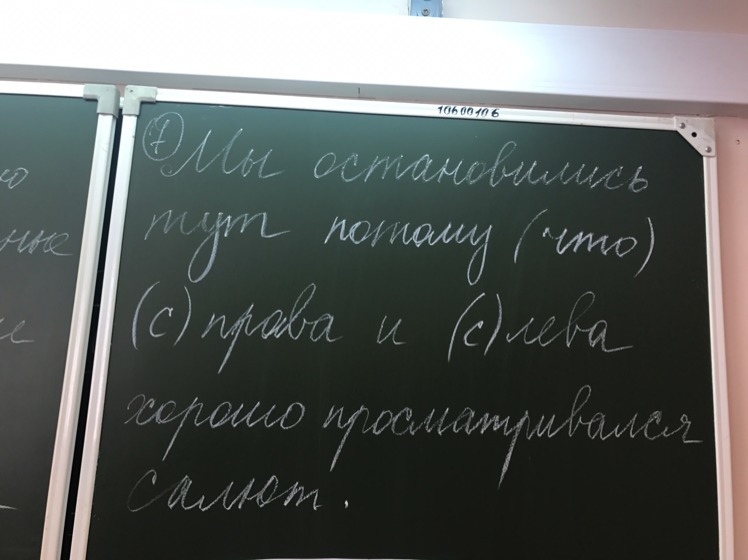 10600106
7 Мы остановились
тут потому (что)
(с)права и (с)лева
хорошо просматривался
салют.